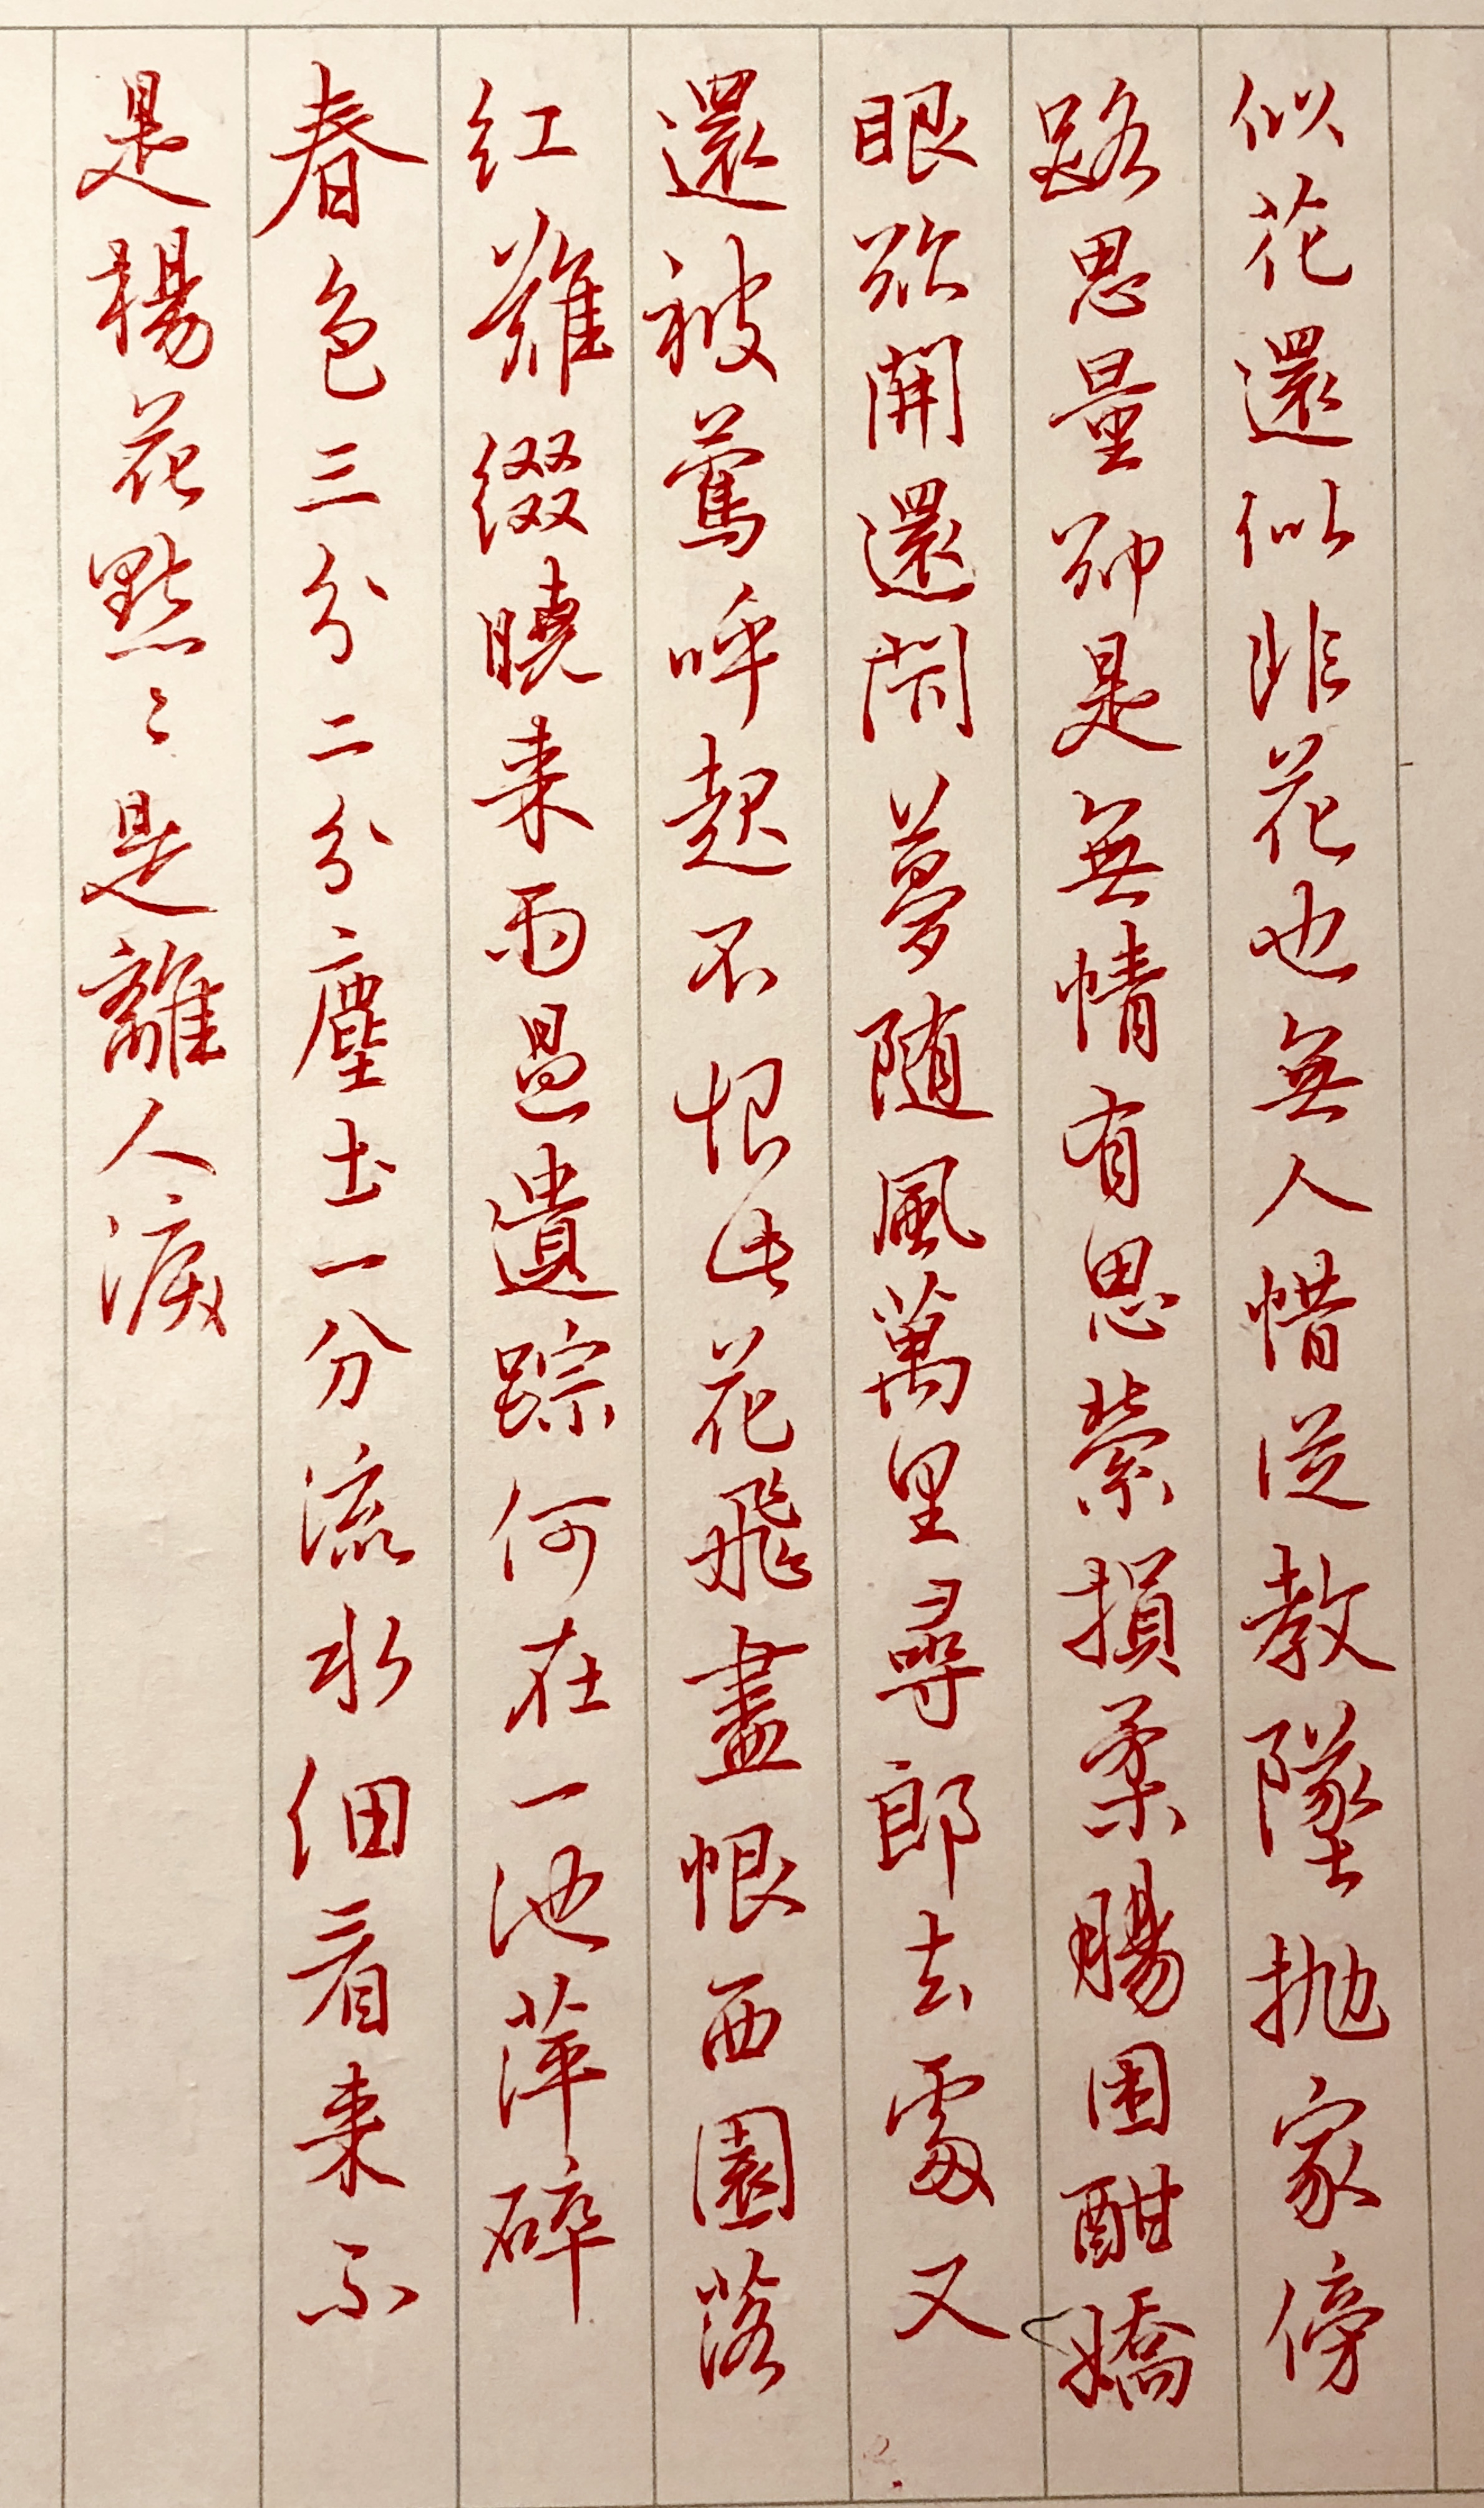 似花還似非花也無人惜從教墜抛家傍
路思量卻是無情有思縈損柔腸困酣嬌
眼欲開還閉夢随風萬里尋郎去處又
還被鶯呼起不恨此花飛盡恨西園落
红難缀曉来雨過遺踪何在一池萍碎
春色三分二分塵土一分流水细看来不
是楊花點〻是離人淚